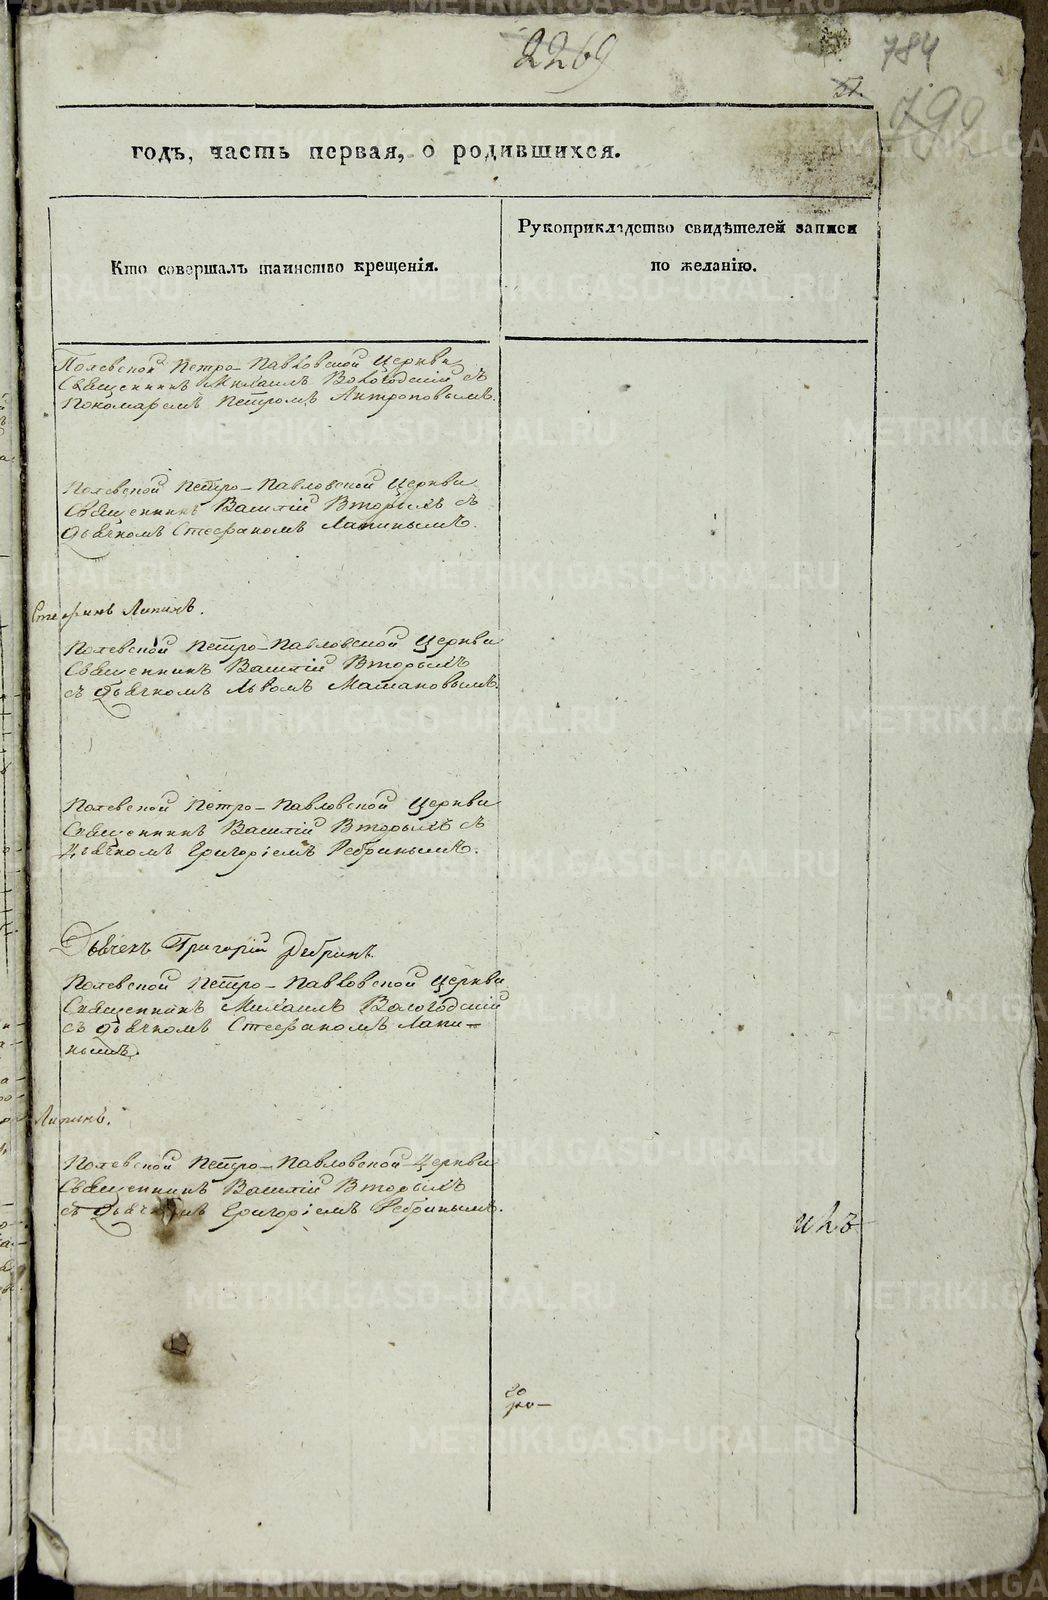 2269
784
792
годъ, часть первая, о родившихся.
Кто совершалъ таинство крещенія.
Рукоприкладство свидѣтелей записи
по желанію.
Полевской Петро-Павловской Церкви
Священникъ Михаилъ Вологодскій съ
Пономаремъ Петромъ Антроповымъ.
Полевской Петро-Павловской Церкви
Священникъ Василій Вторыхъ съ
Дьячкомъ Стефаномъ Лапинымъ.
Стефанъ Лапинъ.
Полевской Петро-Павловской Церкви
Священникъ Василій Вторыхъ
съ Дьячкомъ Львомъ
Полевской Петро-Павловской Церкви
Священникъ Василій Вторыхъ съ
Дьячкомъ Григоріемъ Ребринымъ.
Дьячекъ Григорій Ребринъ.
Полевской Петро-Павловской Церкви
Священникъ Михаилъ Вологодскій
съ дьячкомъ Стефаномъ Лапи-
нымъ.
Лапинъ.
Полевской Петро-Павловской Церкви
Священникъ Василій Вторыхъ
съ Дьячкомъ Григоріемъ Ребринымъ.
METRIKI.GASO-URAL.RU